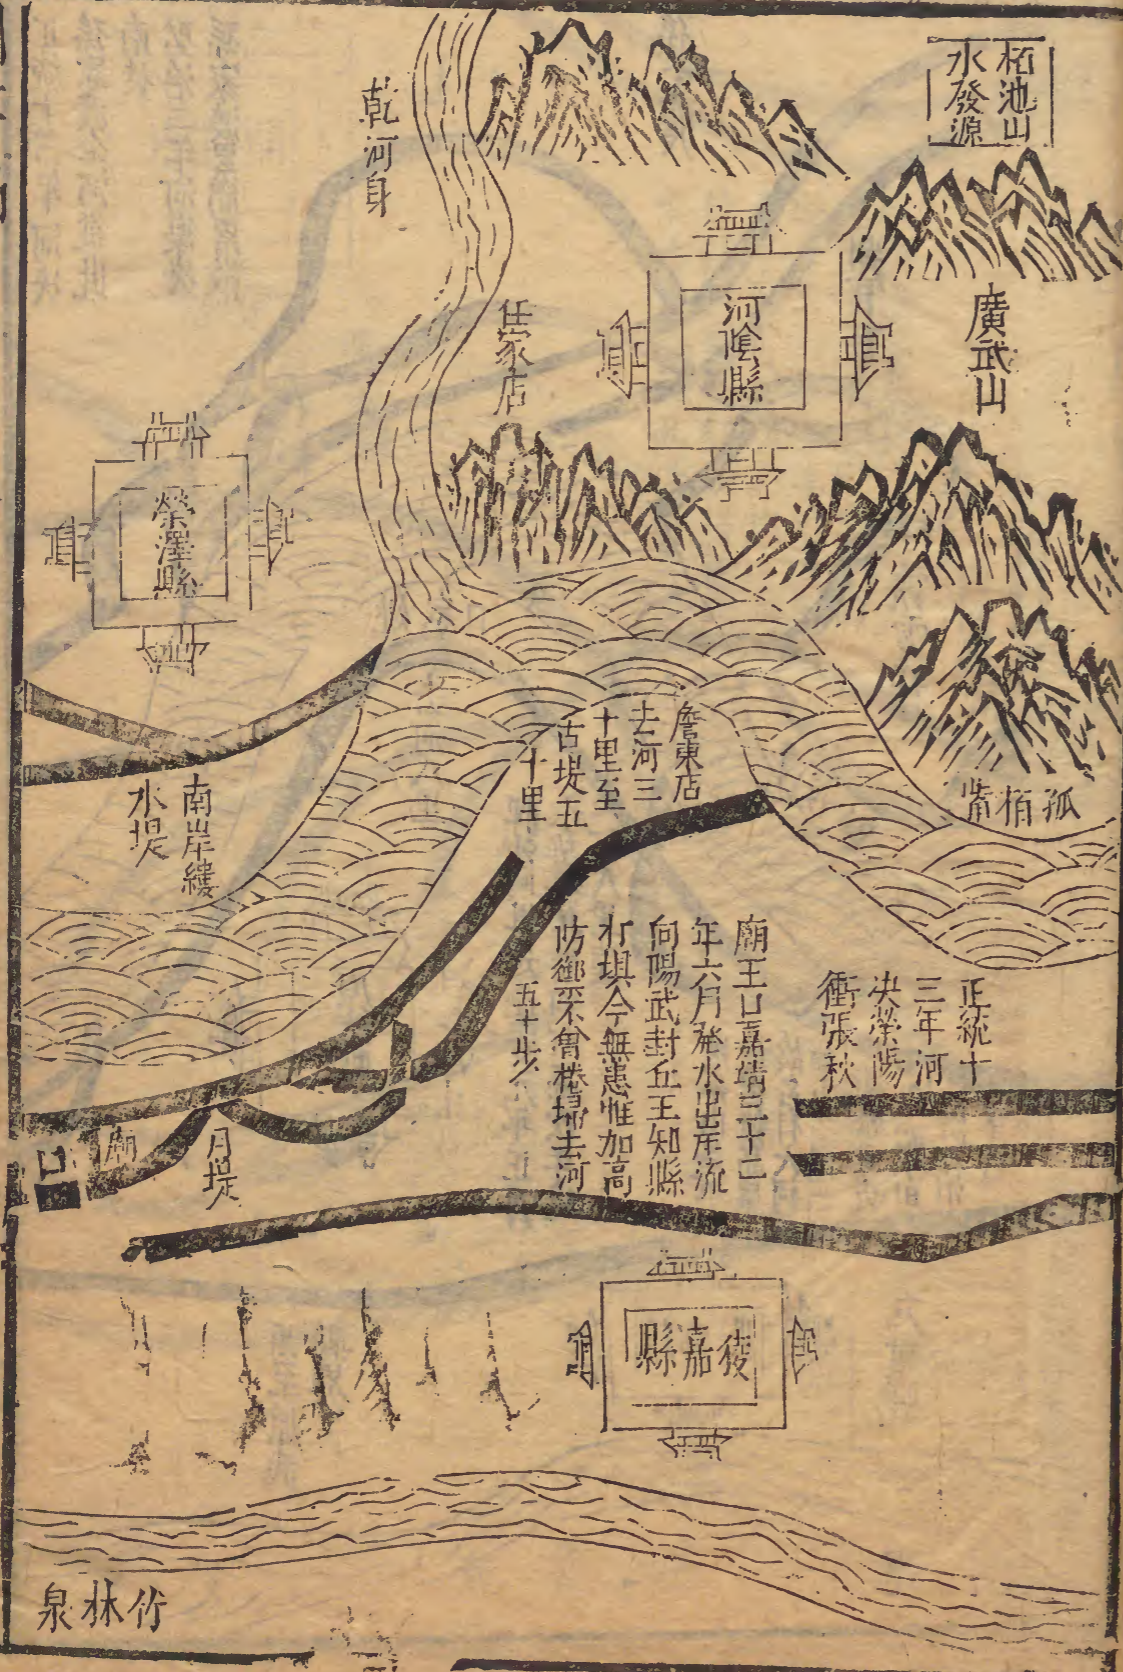 栢池山
水發源
乾河身
廣武山
河陰縣
任家店
滎澤縣
孤栢嘴
詹東店
去河三
十里至
古堤五
十里
南岸縷
水堤
正統十
三年河
决滎陽
衝張秋
廟王口嘉靖三十二
年六月發水出岸流
向陽武封丘王知縣
打埧今無患惟加高
防禦不曾捲埽去河
五十步
月堤
廟
口
獲嘉縣
竹林泉